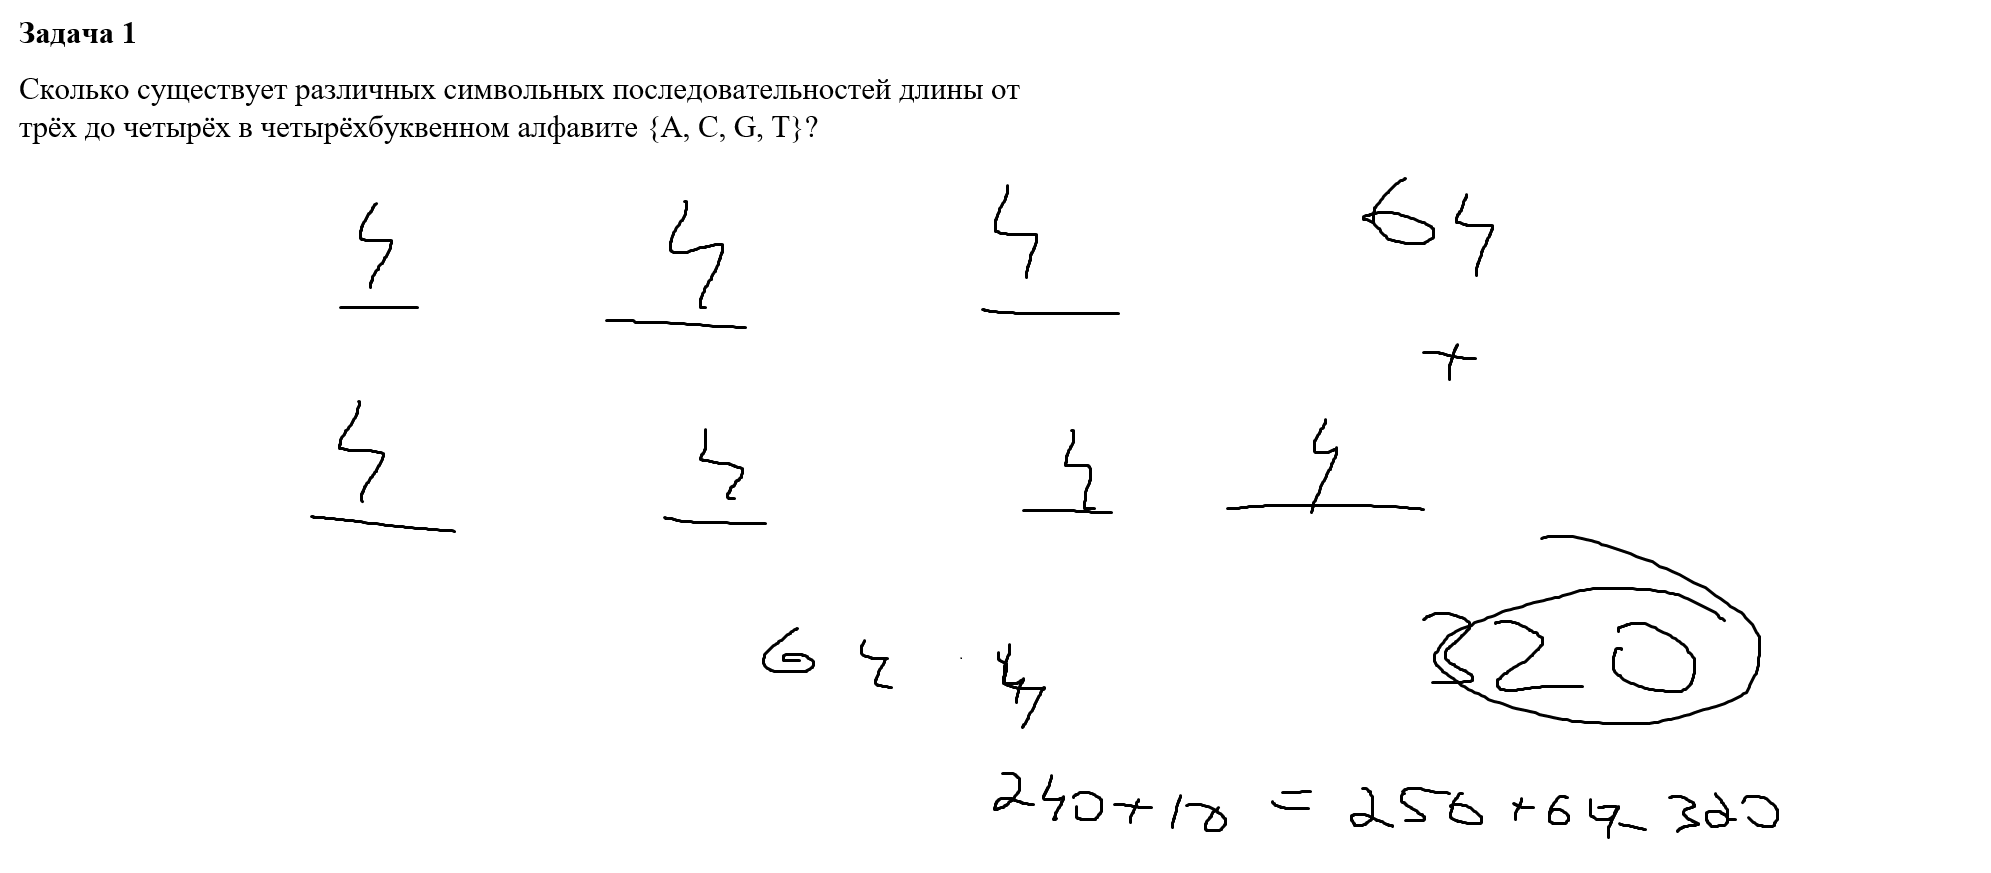 Задача 1
Сколько существует различных символьных последовательностей длины от
трёх до четырёх в четырёхбуквенном алфавите {A, C, G, T}?
4 4 4 64
+
4 4 4 4
64 · 4 320
240+16 = 256+64=320